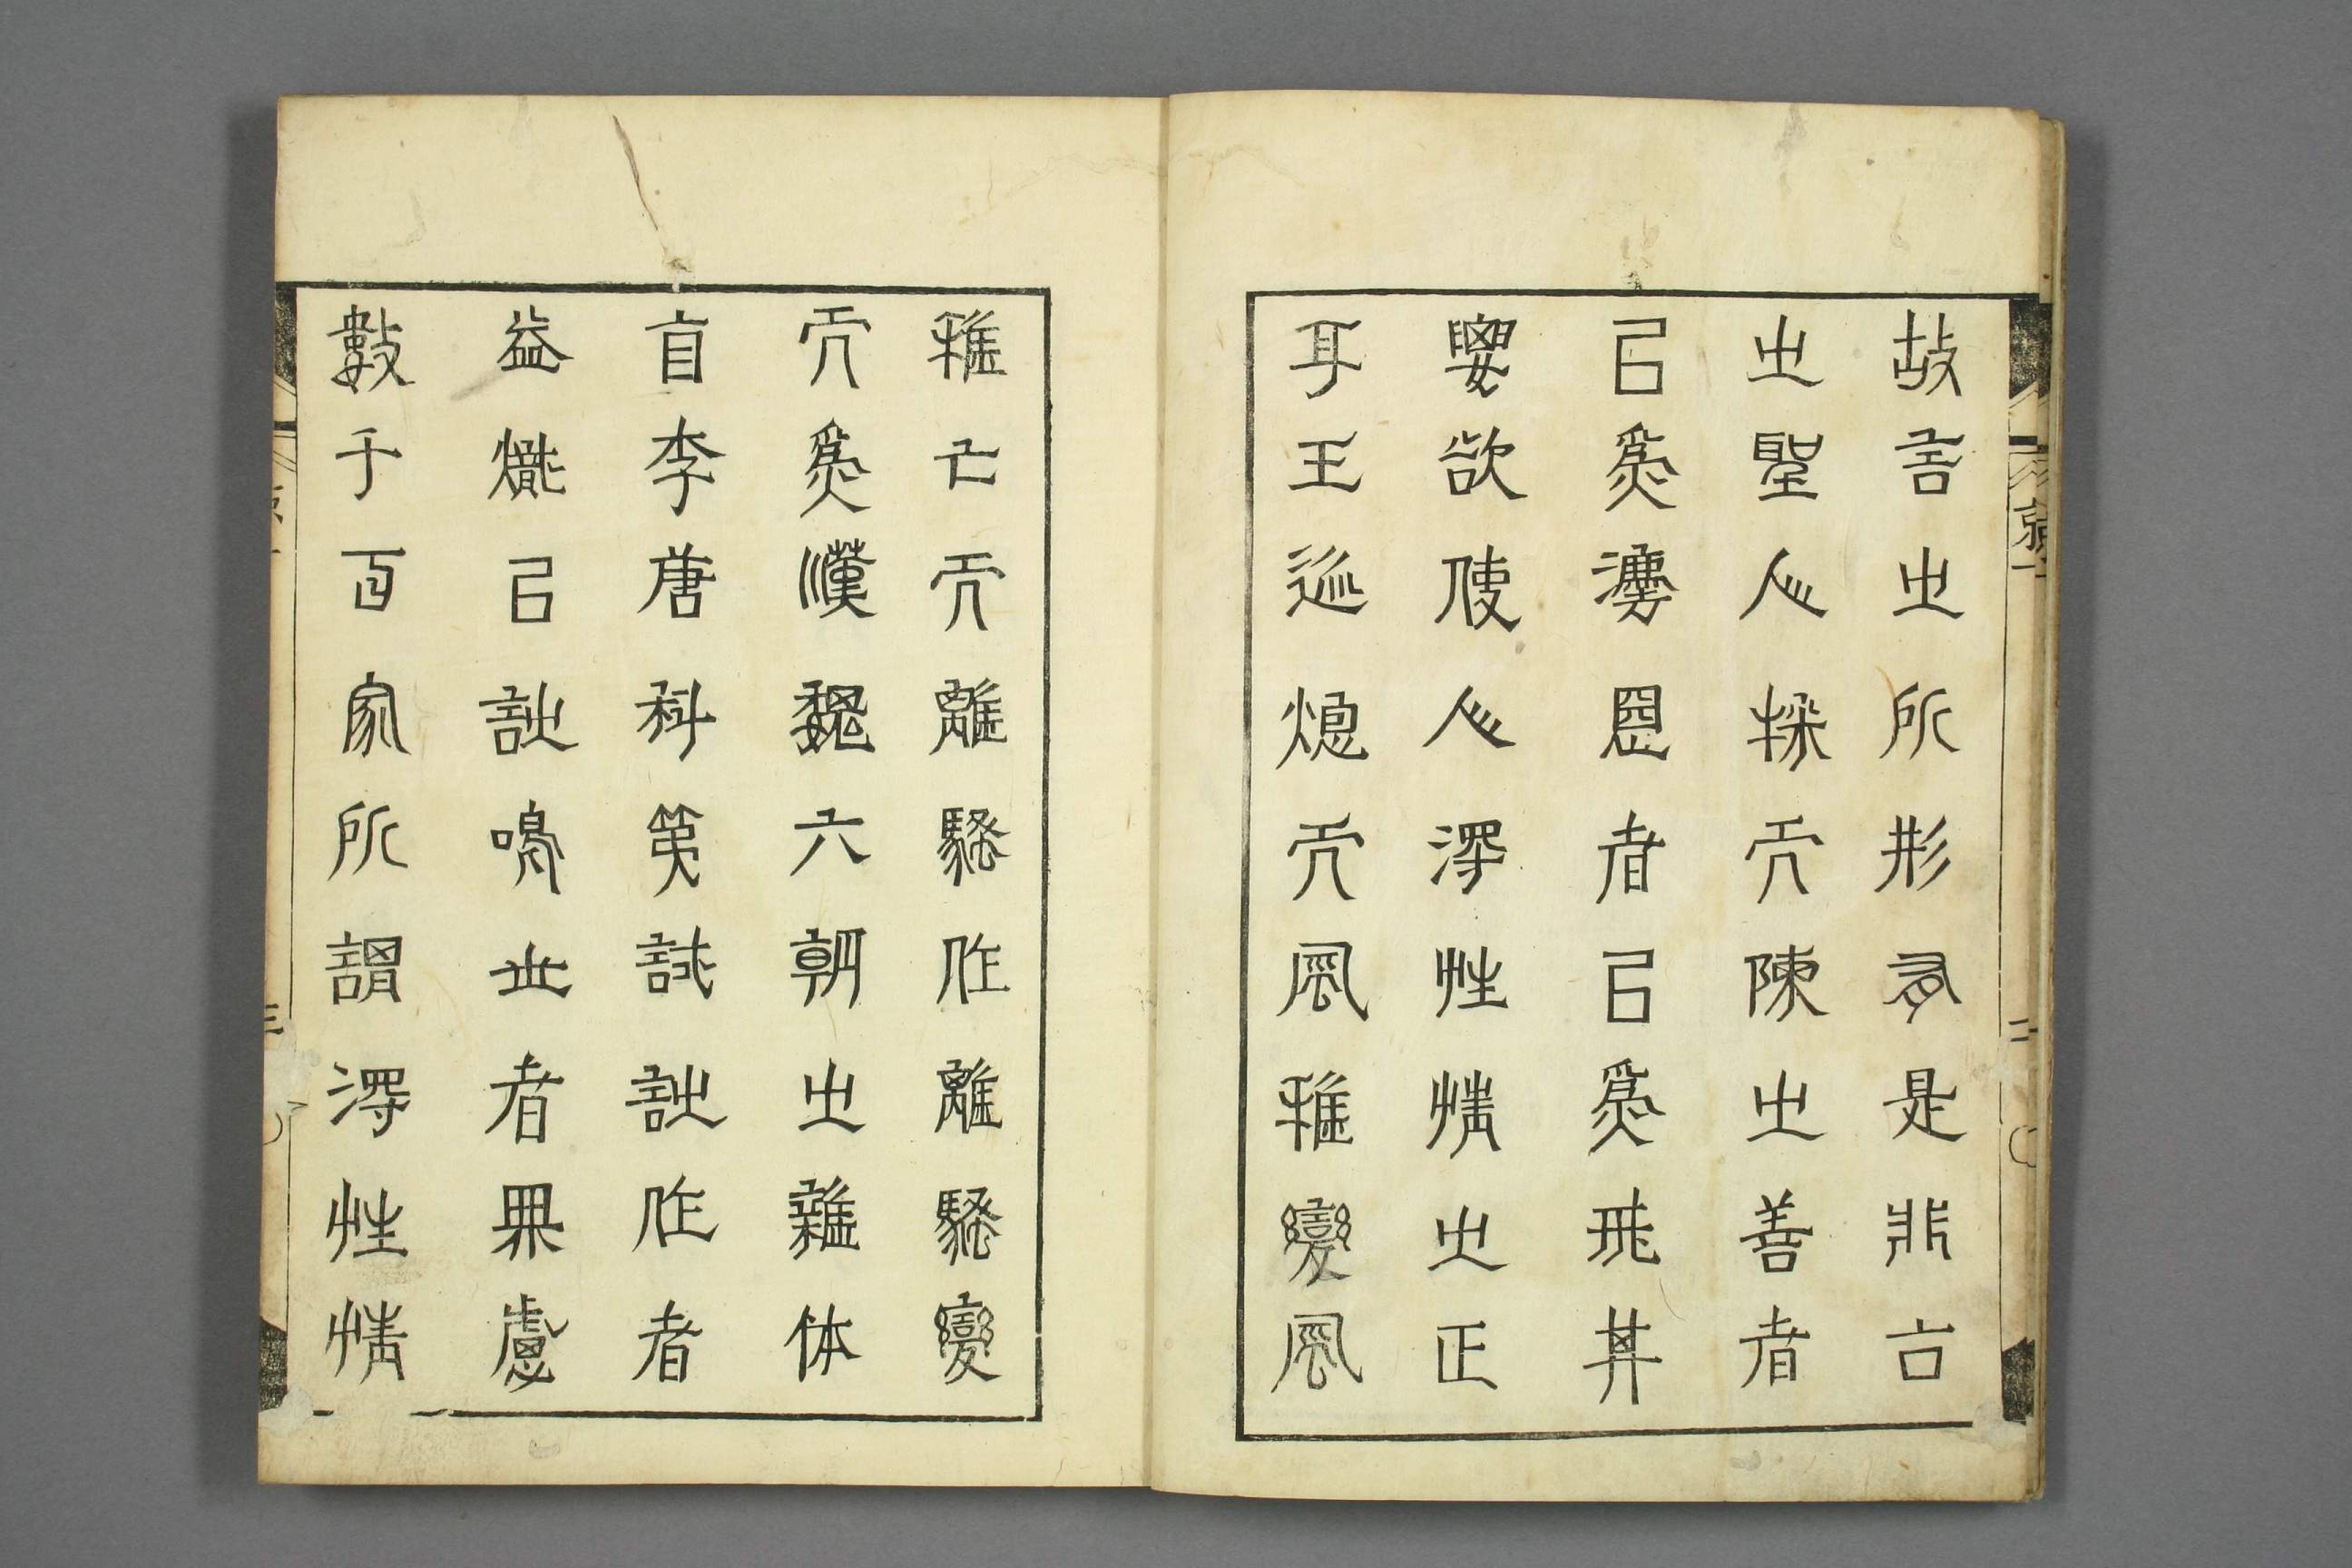 故言之所形有是非古
之聖人採而陳之善者
㠯為灋惡者㠯為戒其
要欲使人得性情之正
耳王迹熄而風雅變風
雅亡而離騷作離騷變
而為漢魏六朝之雜体
自李唐科第試詩作者
益熾㠯詩鳴世者無慮
數千百家所謂得性情